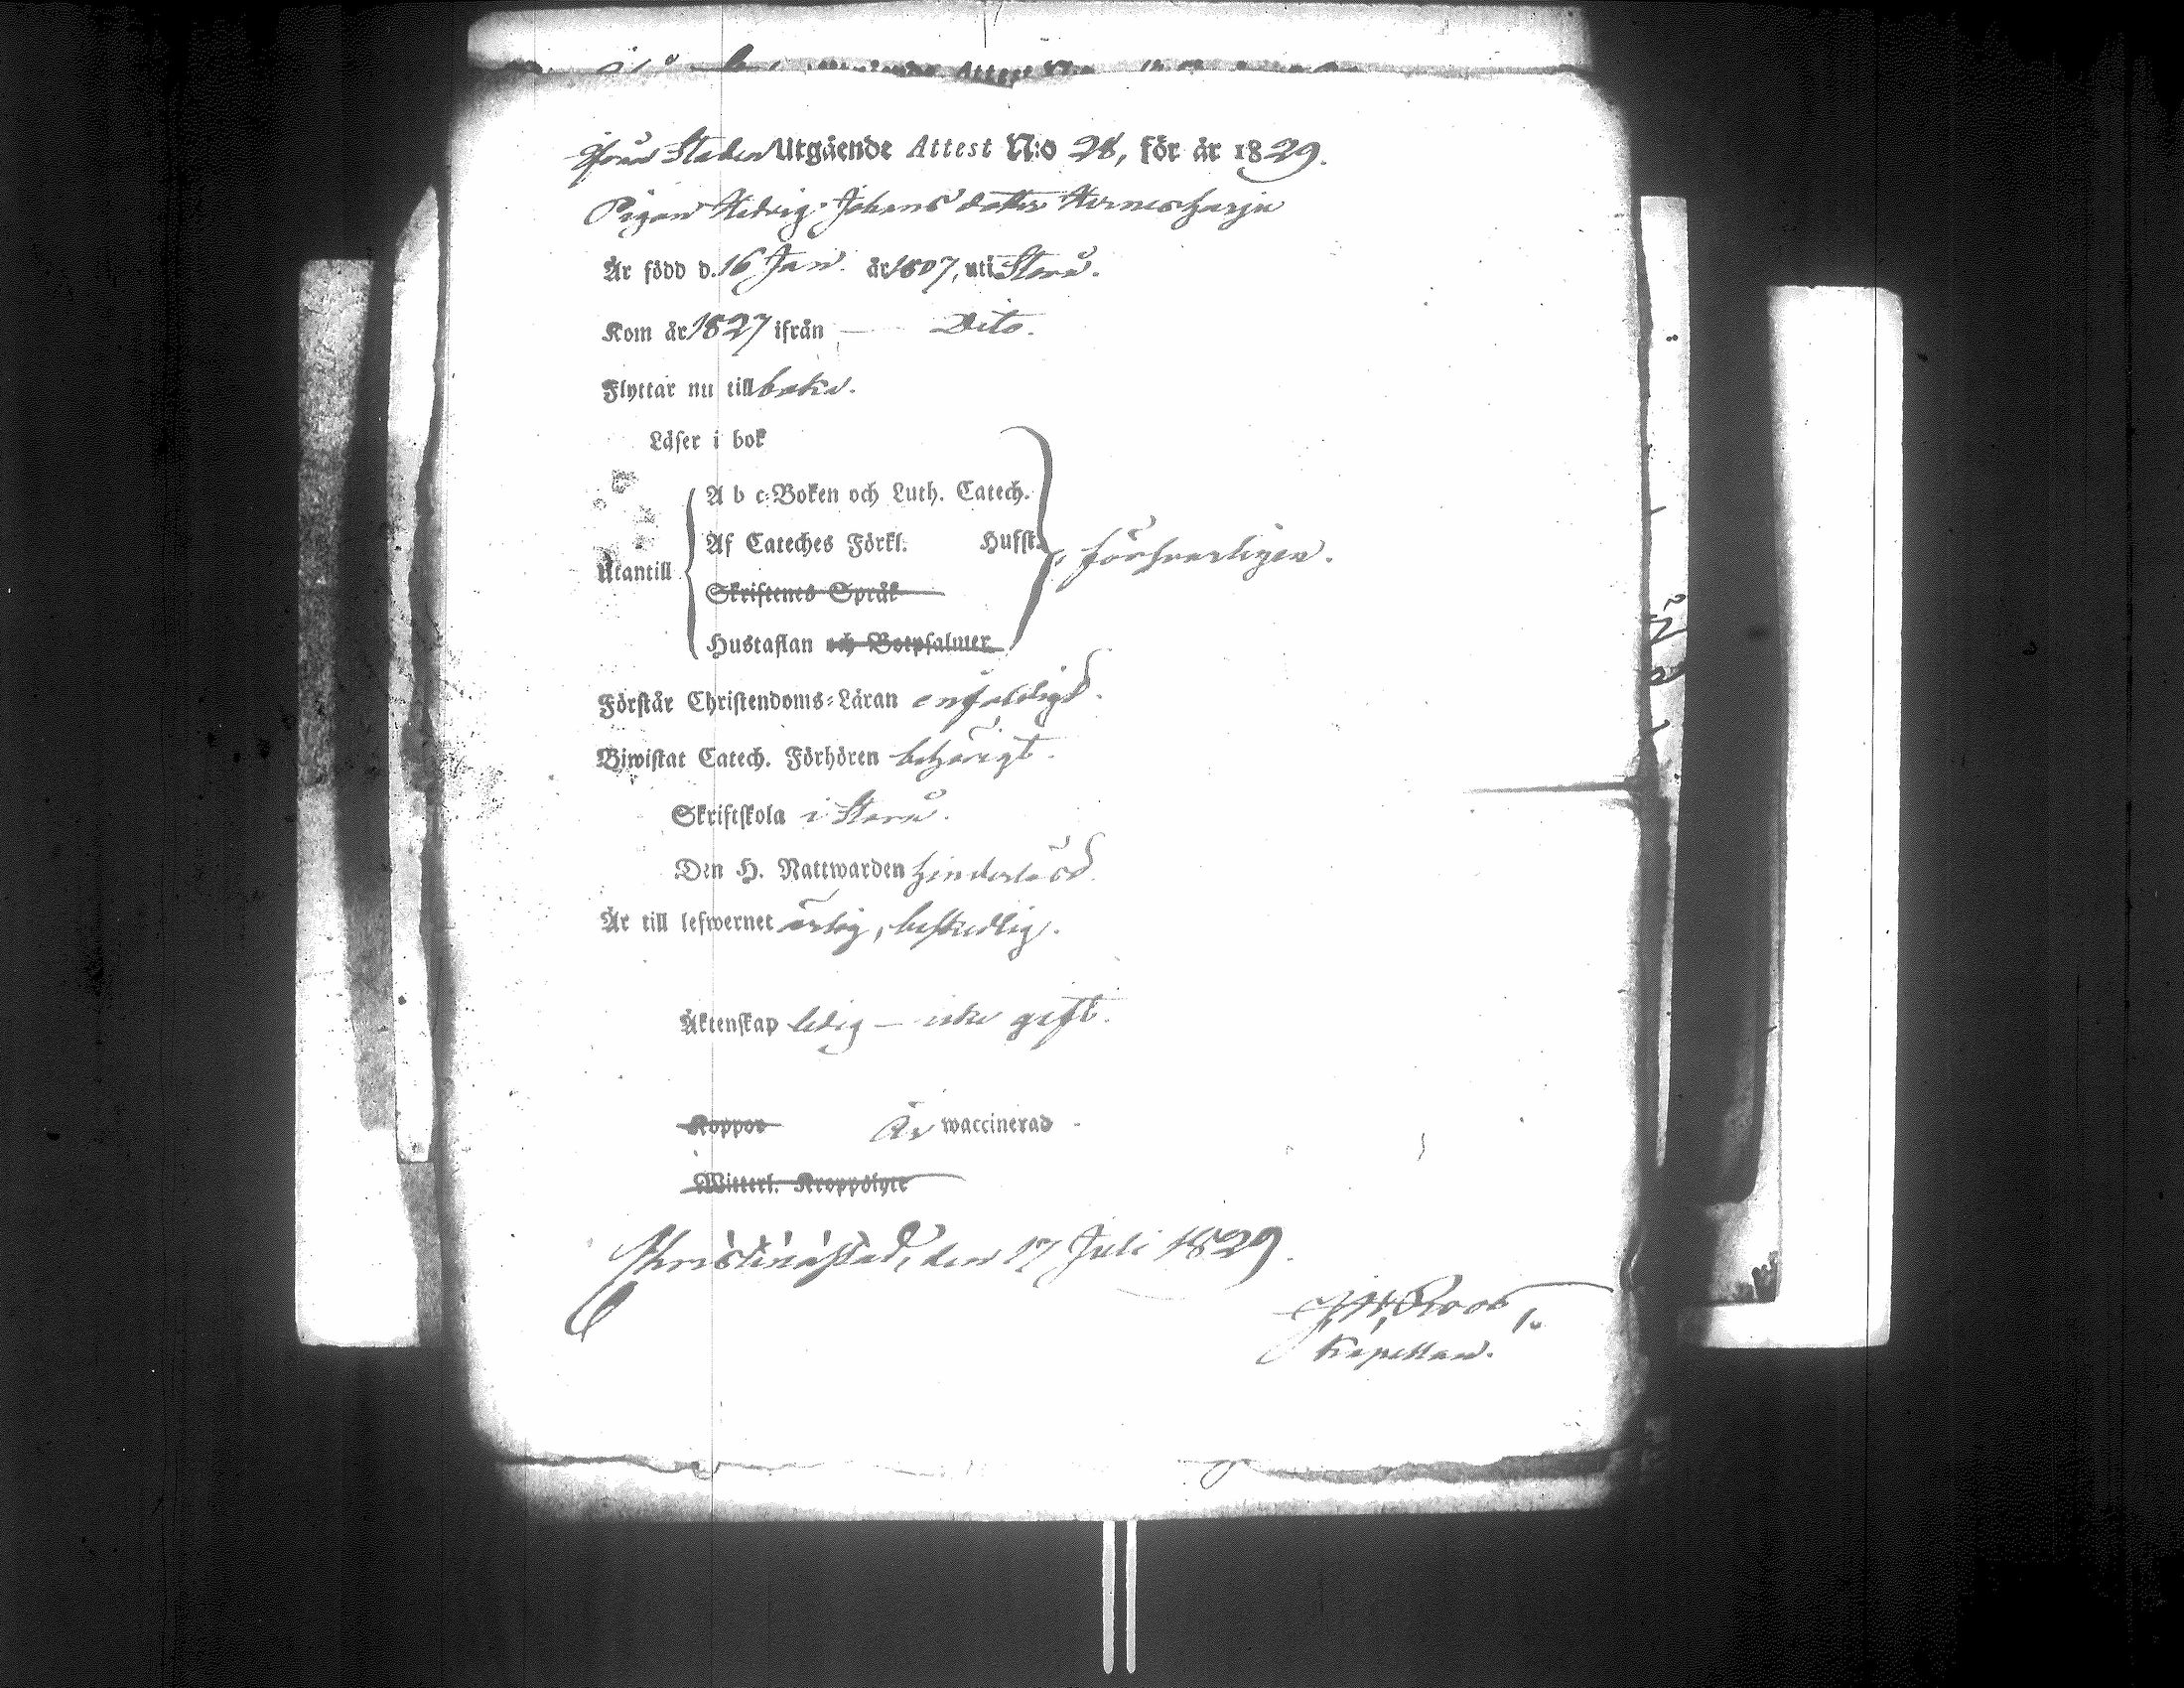 ifrån Staden Utgående Attest N:o 28, för år 1829.
Pigan Hedvig Johansdotter Hernesharju
Är född d. 16 Jan. år 1807, uti Storå.
Kom år 1827 ifrån — Dito.
Flyttar nu till baka.
Läser i bok
A b c-Boken och Luth. Catech.
Af Cateches Förkl. Hufst.
Utantill försvarligen.
Skriftenes Språk
Hustaflan och Botpsalmer
Förstår Christendoms-Läran enfaldigt.
Biwistat Catech. Förhören behörigt.
Skriftskola i Storå.
Den H. Nattwarden hinderlöst.
Är till lefwernet ärlig, beskedlig.
Äktenskap ledig — icke gift.
Koppor Är waccinerad
Witterl. Kroppslyte
Christinæstad, den 17 Juli 1829.
Roos
Kapellan.